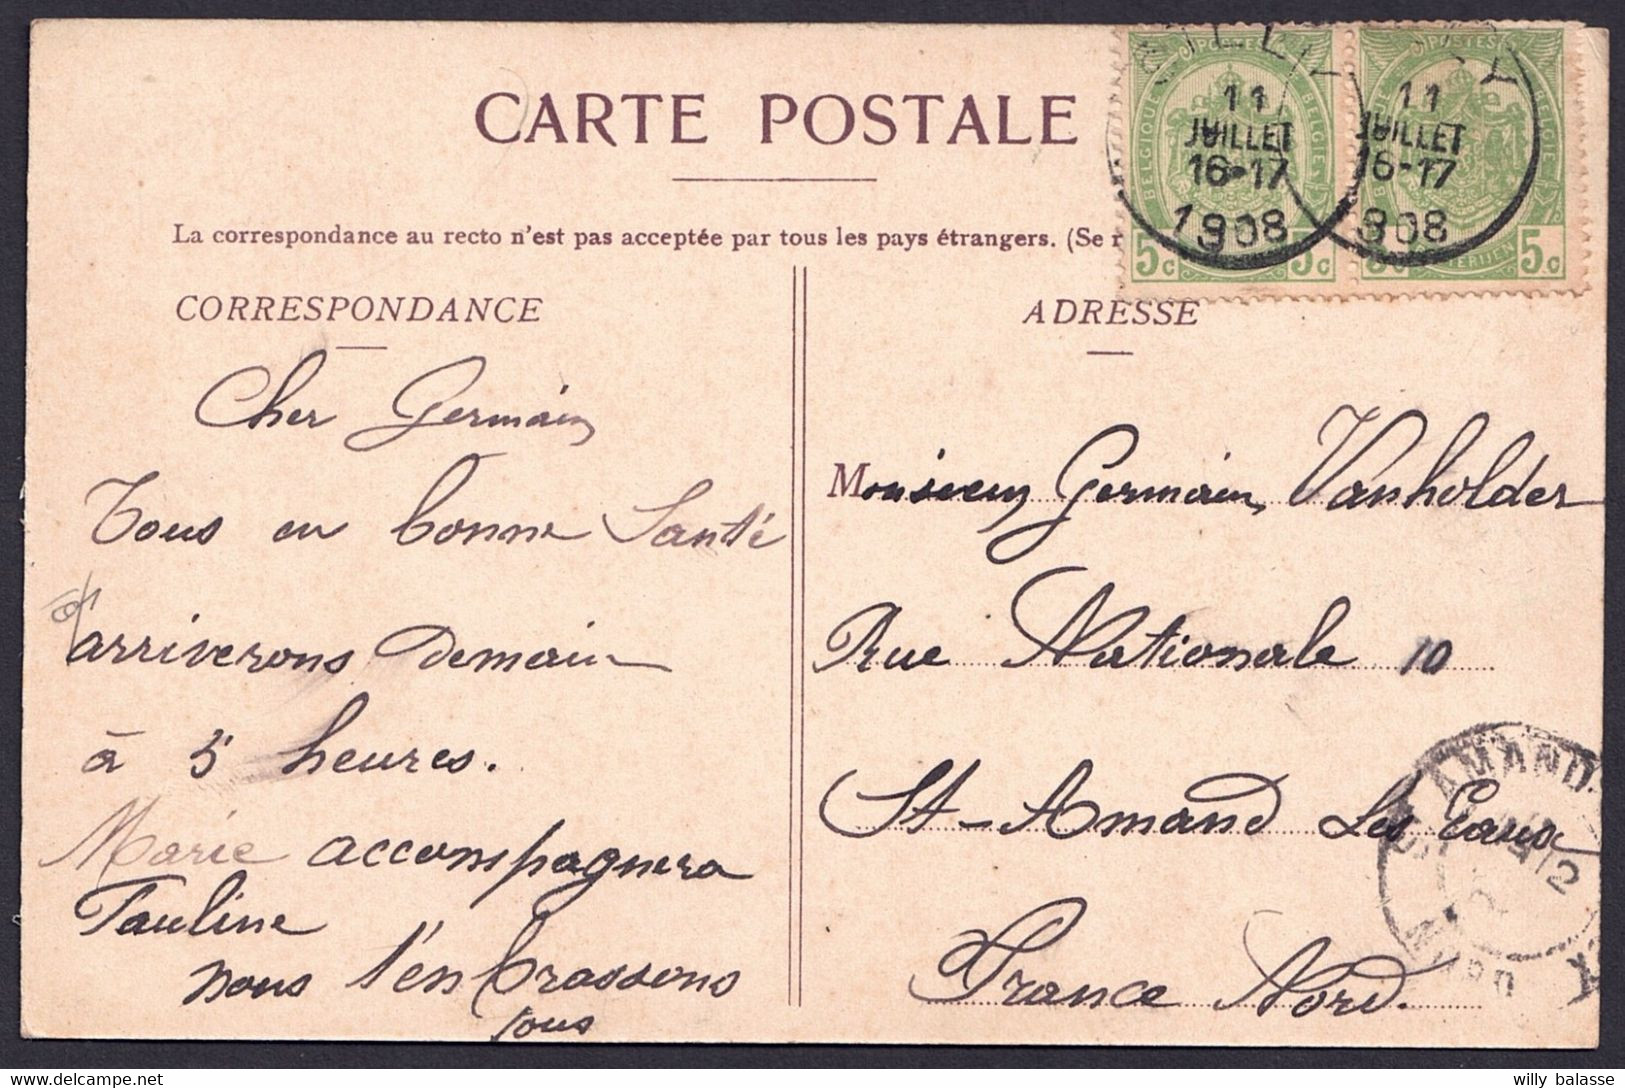 CARTE POSTALE
La correspondance au recto n'est pas acceptée par tous les pays étrangers. (Se r
CORRESPONDANCE
Cher Germain
Tous en bonne Santé
et
arriverons Demain
à 5 heures.
Marie accompagnera
Pauline
nous t'enbrassons
tous
ADRESSE
Monsieur Germain Vanholder
Rue Nationale 10
St-Amand Les Eaux
France Nord.
POSTES
BELGIQUE
BELGIE
5c 5c
11
JUILLET
16-17
1908
POSTES
BELGIE
5c
11
JUILLET
16-17
908
ST AMAND
NORD
willy balasse